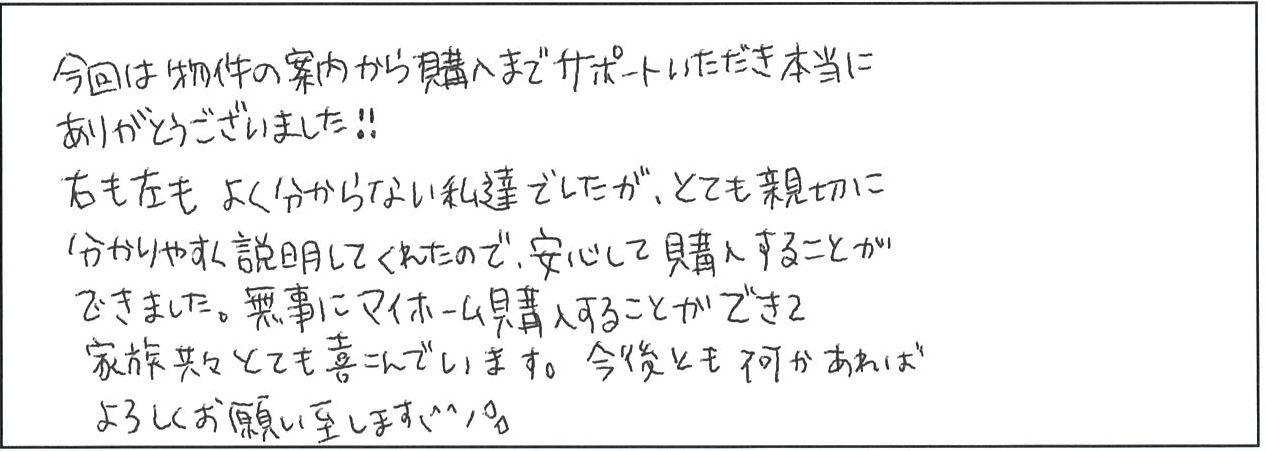 今回は物件の案内から購入までサポートいただき本当に
ありがとうございました!!
右も左もよく分からない私達でしたが、とても親切に
分かりやすく説明してくれたので、安心して購入することが
できました。無事にマイホーム購入することができて
家族共々とても喜こんでいます。今後とも何かあれば
よろしくお願い至します(^^)/